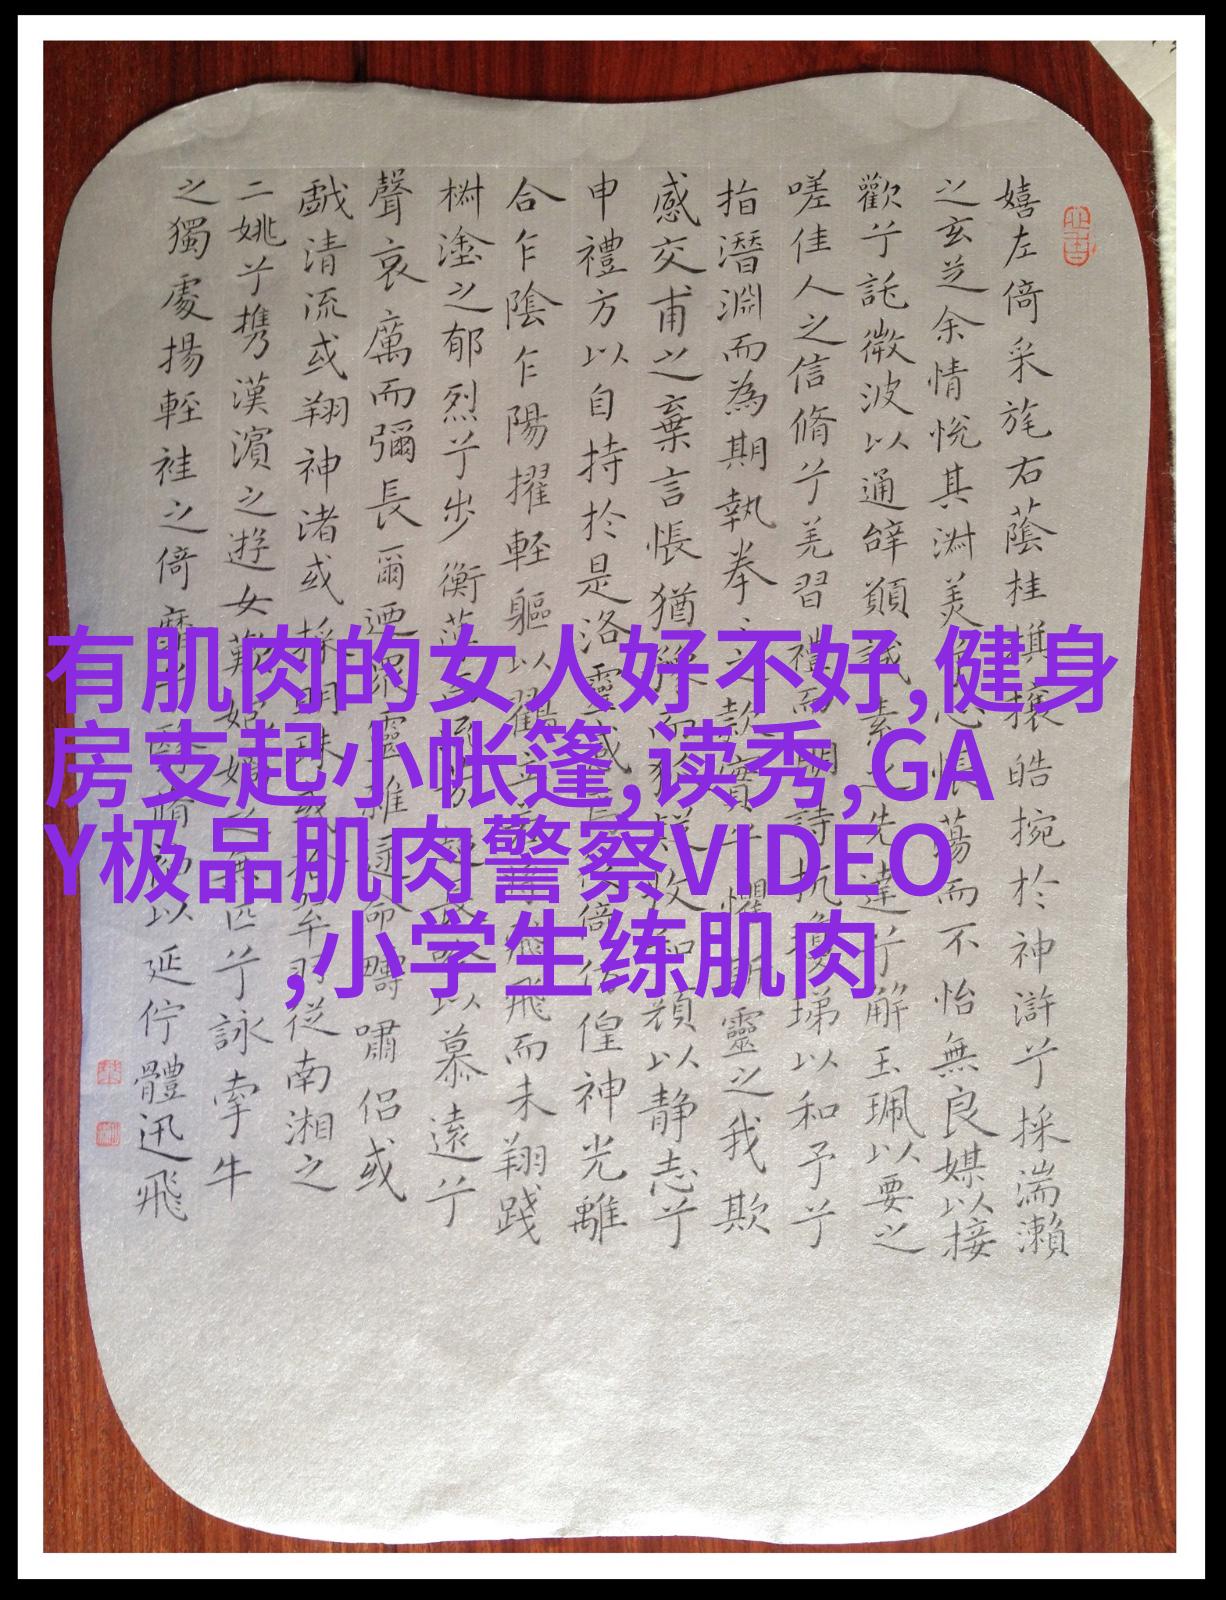 嬉左倚采旄右蔭桂旗攘皓捥於神滸兮採湍瀨
之玄芝余情悅其淑美兮心悵蕩而不怡無良媒以接
歡兮託微波以通辭願誠素之先達兮解玉珮以要之
嗟佳人之信脩兮羌習禮而明詩抗瓊珶以和予兮
指潛淵而為期執拳之款實兮懼斯靈之我欺
感交甫之棄言悵猶豫而狐疑收和顔以静志兮
申禮方以自持於是洛靈感焉徙倚彷徨神光離
合乍陰乍陽擢輕軀以鶴立若將飛而未翔踐
椒塗之郁烈兮步衡薄而流芳超長吟以慕遠兮
聲哀厲而彌長爾迺眾靈雜遝命疇嘯侶或
戲清流或翔神渚或採明珠或拾翠羽從南湘之
二姚兮携漢濱之遊女歎媧之無匹兮詠牽牛
之獨處揚輕袿之倚靡兮翳脩袖以延佇體迅飛
有肌肉的女人好不好,健身
房支起小帐篷,读秀,GA
Y极品肌肉警察VIDEO
,小学生练肌肉